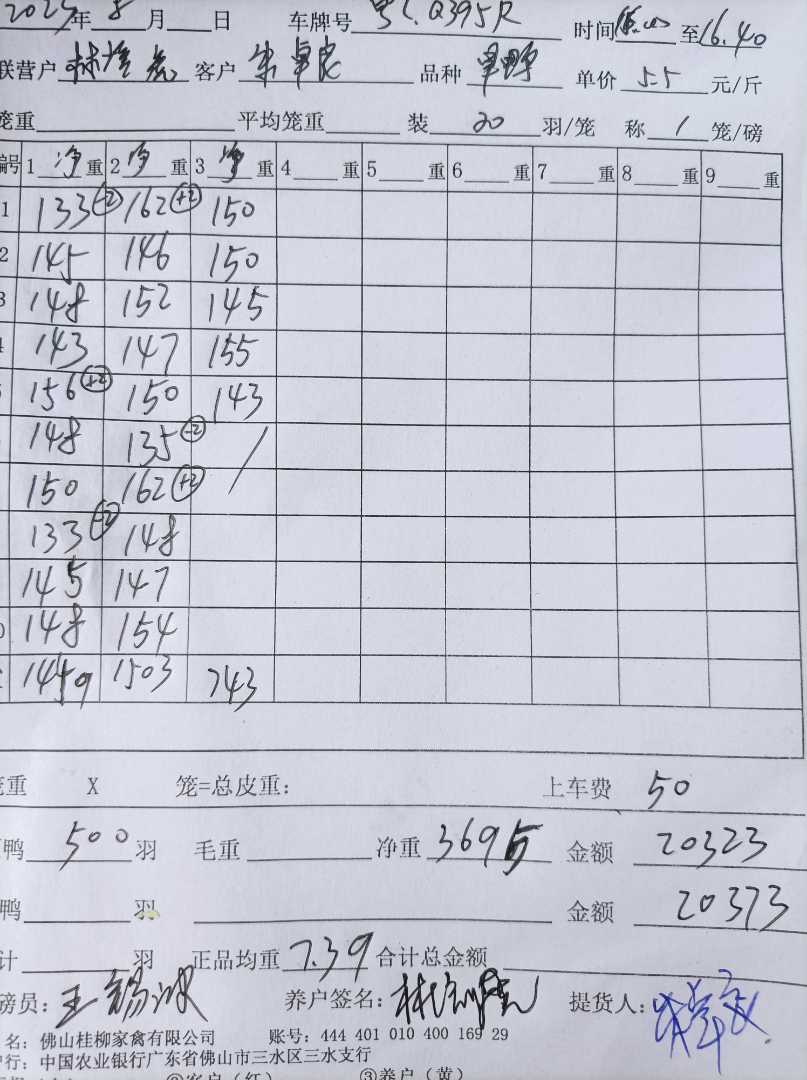 2025年 8月 日 车牌号 粤C.Q395R 时间 至16.40
联营户 林 客户 朱卓良 品种 单野 单价 5.5 元/斤
笼重 平均笼重 装 20 羽/笼 称 1 笼/磅
编号 1 净 重 2 净 重 3 净 重 4 重 5 重 6 重 7 重 8 重 9 重
1 133 -2 162 +2 150
2 145 146 150
3 148 152 145
4 143 147 155
156 +2 150 143
148 135 -2 /
150 162 +2
133 -2 148
145 147
148 154
1449 1503 743
笼重 X 笼=总皮重: 上车费 50
鸭 500 羽 毛重 净重 3695 金额 20323
鸭 羽 金额 20373
计 羽 正品均重 7.39 合计总金额
磅员: 王锡冰 养户签名: 林 提货人:
名: 佛山桂柳家禽有限公司 账号: 444 401 010 400 169 29
户行: 中国农业银行广东省佛山市三水区三水支行
②客户(红) ③养户(黄)